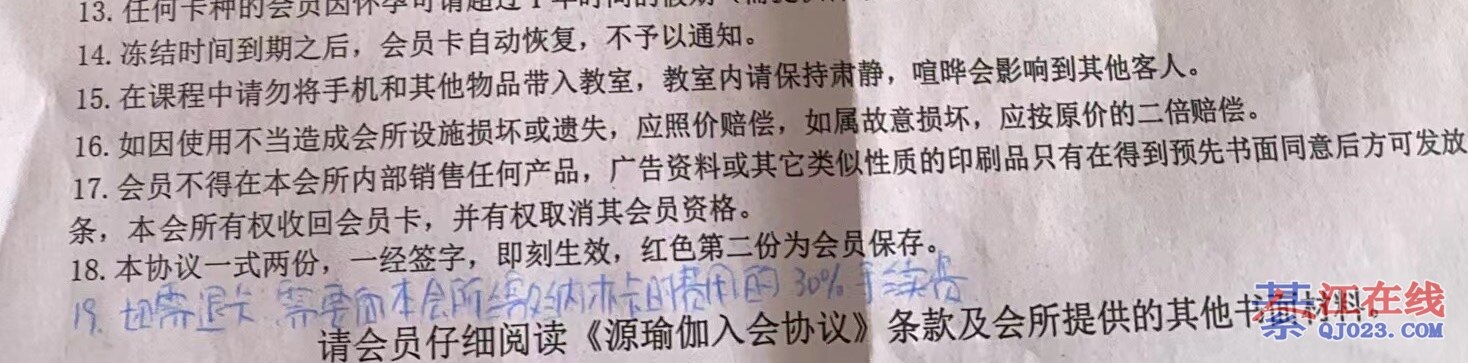 13. 任何卡种的会员因怀孕可请超过1年时间的假期（需
14. 冻结时间到期之后，会员卡自动恢复，不予以通知。
15. 在课程中请勿将手机和其他物品带入教室，教室内请保持肃静，喧哗会影响到其他客人。
16. 如因使用不当造成会所设施损坏或遗失，应照价赔偿，如属故意损坏，应按原价的二倍赔偿。
17. 会员不得在本会所内部销售任何产品，广告资料或其它类似性质的印刷品只有在得到预先书面同意后方可发放
条，本会所有权收回会员卡，并有权取消其会员资格。
18. 本协议一式两份，一经签字，即刻生效，红色第二份为会员保存。
19. 如需退卡 需要向本会所缴纳本卡的费用的30%手续费
请会员仔细阅读《源瑜伽入会协议》条款及会所提供的其他书面材料。
綦江在线
QJ023.com